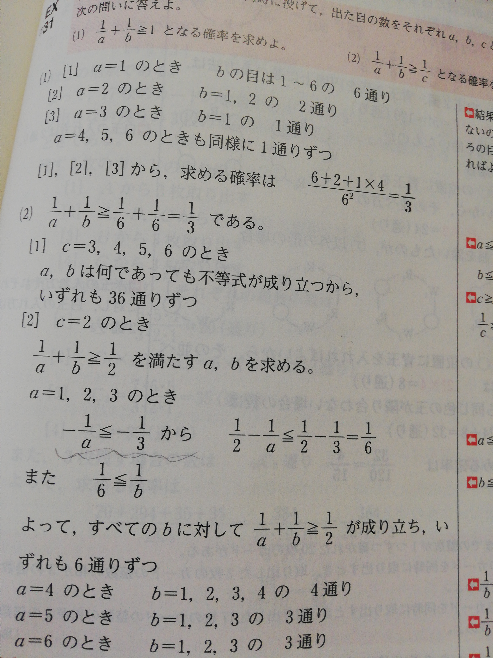 EX
31
次の問いに答えよ。
に投げて，出た目の数をそれぞれa, b, cと
(1) 1/a + 1/b ≧ 1 となる確率を求めよ。
(2) 1/a + 1/b ≧ 1/c となる確率を
(1) [1] a=1 のとき bの目は1～6の 6通り
[2] a=2 のとき b=1, 2 の 2通り
[3] a=3 のとき b=1 の 1通り
a=4, 5, 6 のときも同様に1通りずつ
[1], [2], [3] から，求める確率は (6+2+1×4)/6² = 1/3
(2) 1/a + 1/b ≧ 1/6 + 1/6 = 1/3 である。
[1] c=3, 4, 5, 6 のとき
a, b は何であっても不等式が成り立つから，
いずれも36通りずつ
[2] c=2 のとき
1/a + 1/b ≧ 1/2 を満たす a, b を求める。
a=1, 2, 3 のとき
-1/a ≦ -1/3 から 1/2 - 1/a ≦ 1/2 - 1/3 = 1/6
また 1/6 ≦ 1/b
よって，すべてのbに対して 1/a + 1/b ≧ 1/2 が成り立ち，い
ずれも6通りずつ
a=4 のとき b=1, 2, 3, 4 の 4通り
a=5 のとき b=1, 2, 3 の 3通り
a=6 のとき b=1, 2, 3 の 3通り
結果
ないの
ろの目
ればよ
a≦
b≦
c≧
1/c
a≦
b≦
1/b
1/b